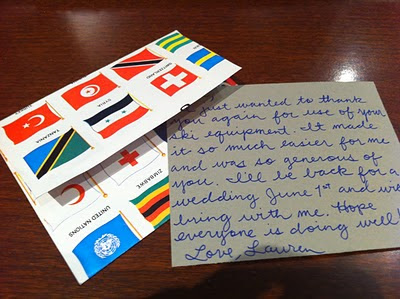 SWITZERLAND
SYRIA
TANZANIA
ZIMBABWE
UNITED NATIONS
just wanted to thank
you again for use of your
ski equipment. It made
it so much easier for me
and was so generous of
you. I'll be back for a
wedding June 1st and
bring with me. Hope
everyone is doing well!
Love, Lauren